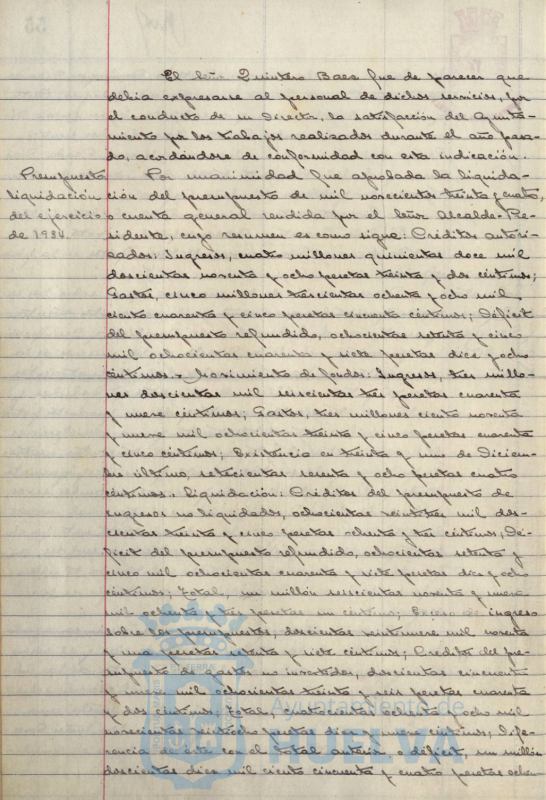 El Señor Quintero Baez fue de parecer que
debia expresarse al personal de dichos servicios, por
el conducto de su Director, la satisfacción del Ayunta-
miento por los trabajos realizados durante el año pasa-
do, acordándose de conformidad con esta indicación.
Presupuesto
liquidación
del ejercicio
de 1934.
Por unanimidad fue aprobada la liquida-
ción del presupuesto de mil novecientos treinta y cuatro,
o cuenta general rendida por el Señor Alcalde-Pre-
sidente, cuyo resumen es como sigue: Créditos autori-
zados: Ingresos, cuatro millones quinientos doce mil
doscientas noventa y ocho pesetas treinta y dos céntimos;
Gastos, cinco millones trescientas ochenta y ocho mil
ciento cuarenta y cinco pesetas cincuenta céntimos; Déficit
del presupuesto refundido, ochocientas setenta y cinco
mil ochocientas cuarenta y siete pesetas diez y ocho
céntimos. Movimiento de fondos: Ingresos, tres millo-
nes doscientas mil seiscientas tres pesetas cuarenta
y nueve céntimos; Gastos, tres millones ciento noventa
y nueve mil ochocientas treinta y cinco pesetas cuarenta
y cinco céntimos; Existencia en treinta y uno de Diciem-
bre último, setecientas sesenta y ocho pesetas cuatro
céntimos. Liquidación: Créditos del presupuesto de
ingresos no liquidados, ochocientas veintitres mil dos-
cientas treinta y cinco pesetas ochenta y tres céntimos; Dé-
ficit del presupuesto refundido, ochocientas setenta y
cinco mil ochocientas cuarenta y siete pesetas diez y ocho
céntimos; Total, un millón seiscientas noventa y nueve
mil ochenta y tres pesetas un céntimo; Exceso de ingreso
sobre los presupuestos, doscientas veintinueve mil noventa
y una pesetas setenta y siete céntimos; Créditos del pre-
supuesto de gastos no invertidos, doscientas cincuenta
y nueve mil ochocientas treinta y seis pesetas cuarenta
y dos céntimos; Total, cuatrocientas ochenta y ocho mil
novecientas veintiocho pesetas diez y nueve céntimos; Dife-
rencia de éste con el total anterior o déficit, un millón
doscientas diez mil ciento cincuenta y cuatro pesetas ochen-
Ayuntamiento de
HUELVA